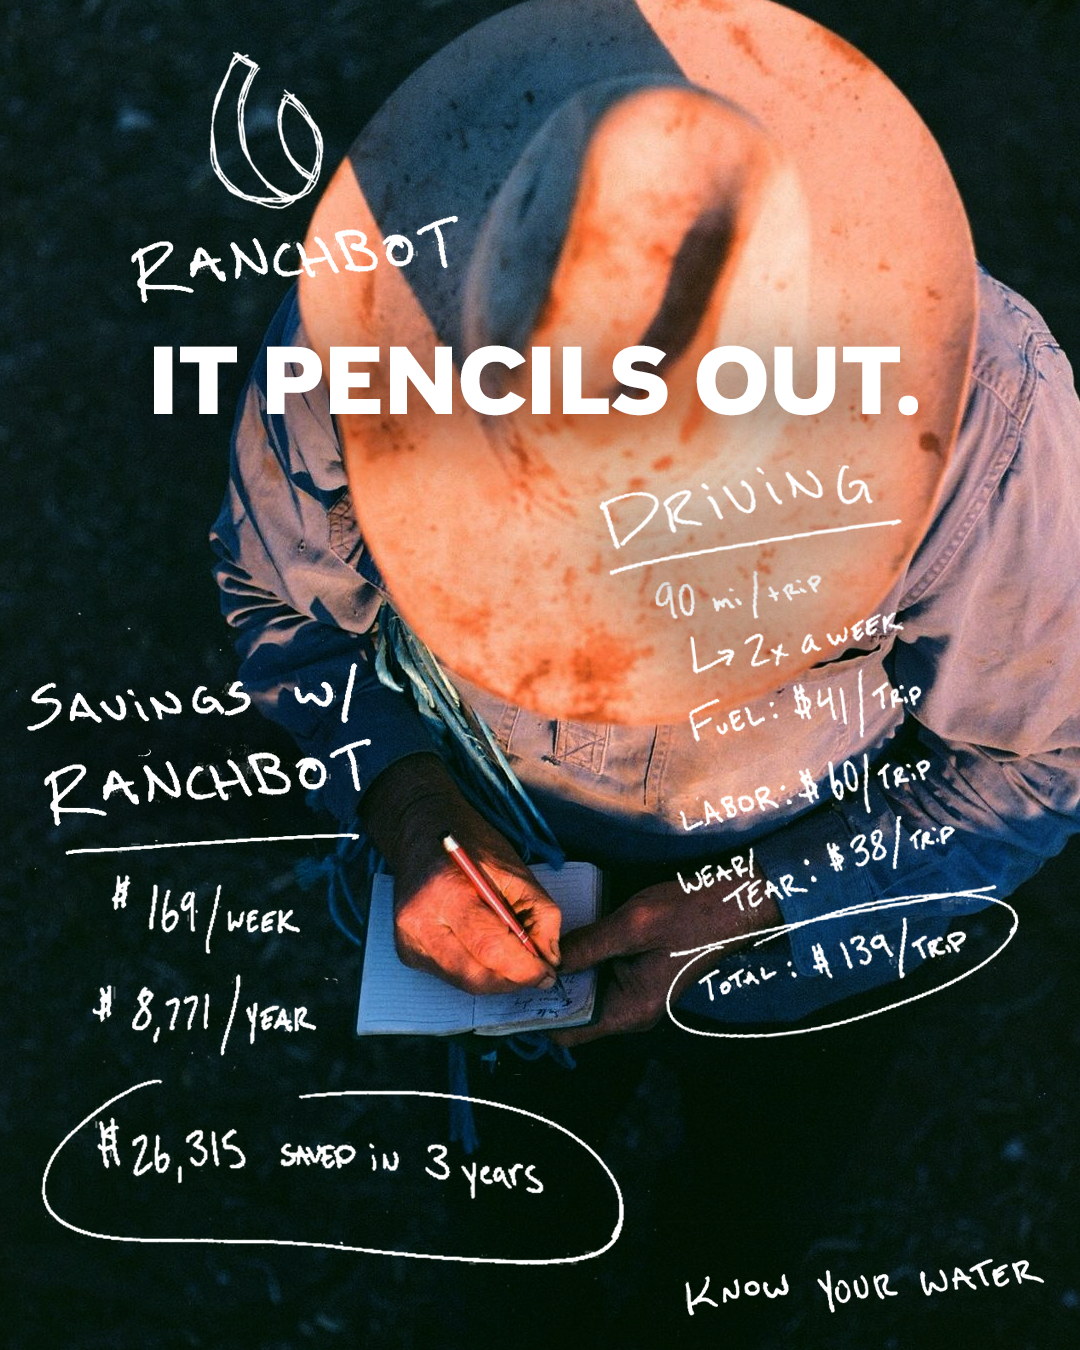 RANCHBOT
IT PENCILS OUT.
DRiViNG
90 mi/tRiP
↳ 2x a WEEK
FUEL: $41/TRiP
LABOR: $60/TRiP
WEAR/
TEAR: $38/TRiP
TOTAL: $139/TRiP
SAViNGS W/
RANCHBOT
$169/WEEK
$8,771/YEAR
$26,315 SAVED iN 3 years
KNOW YOUR WATER